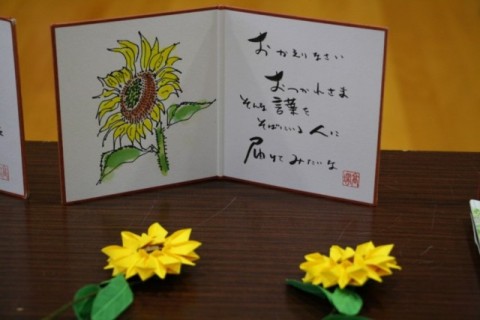 おかえりなさい
おつかれさま
そんな言葉を
そばにいる人に
届けてみたいな